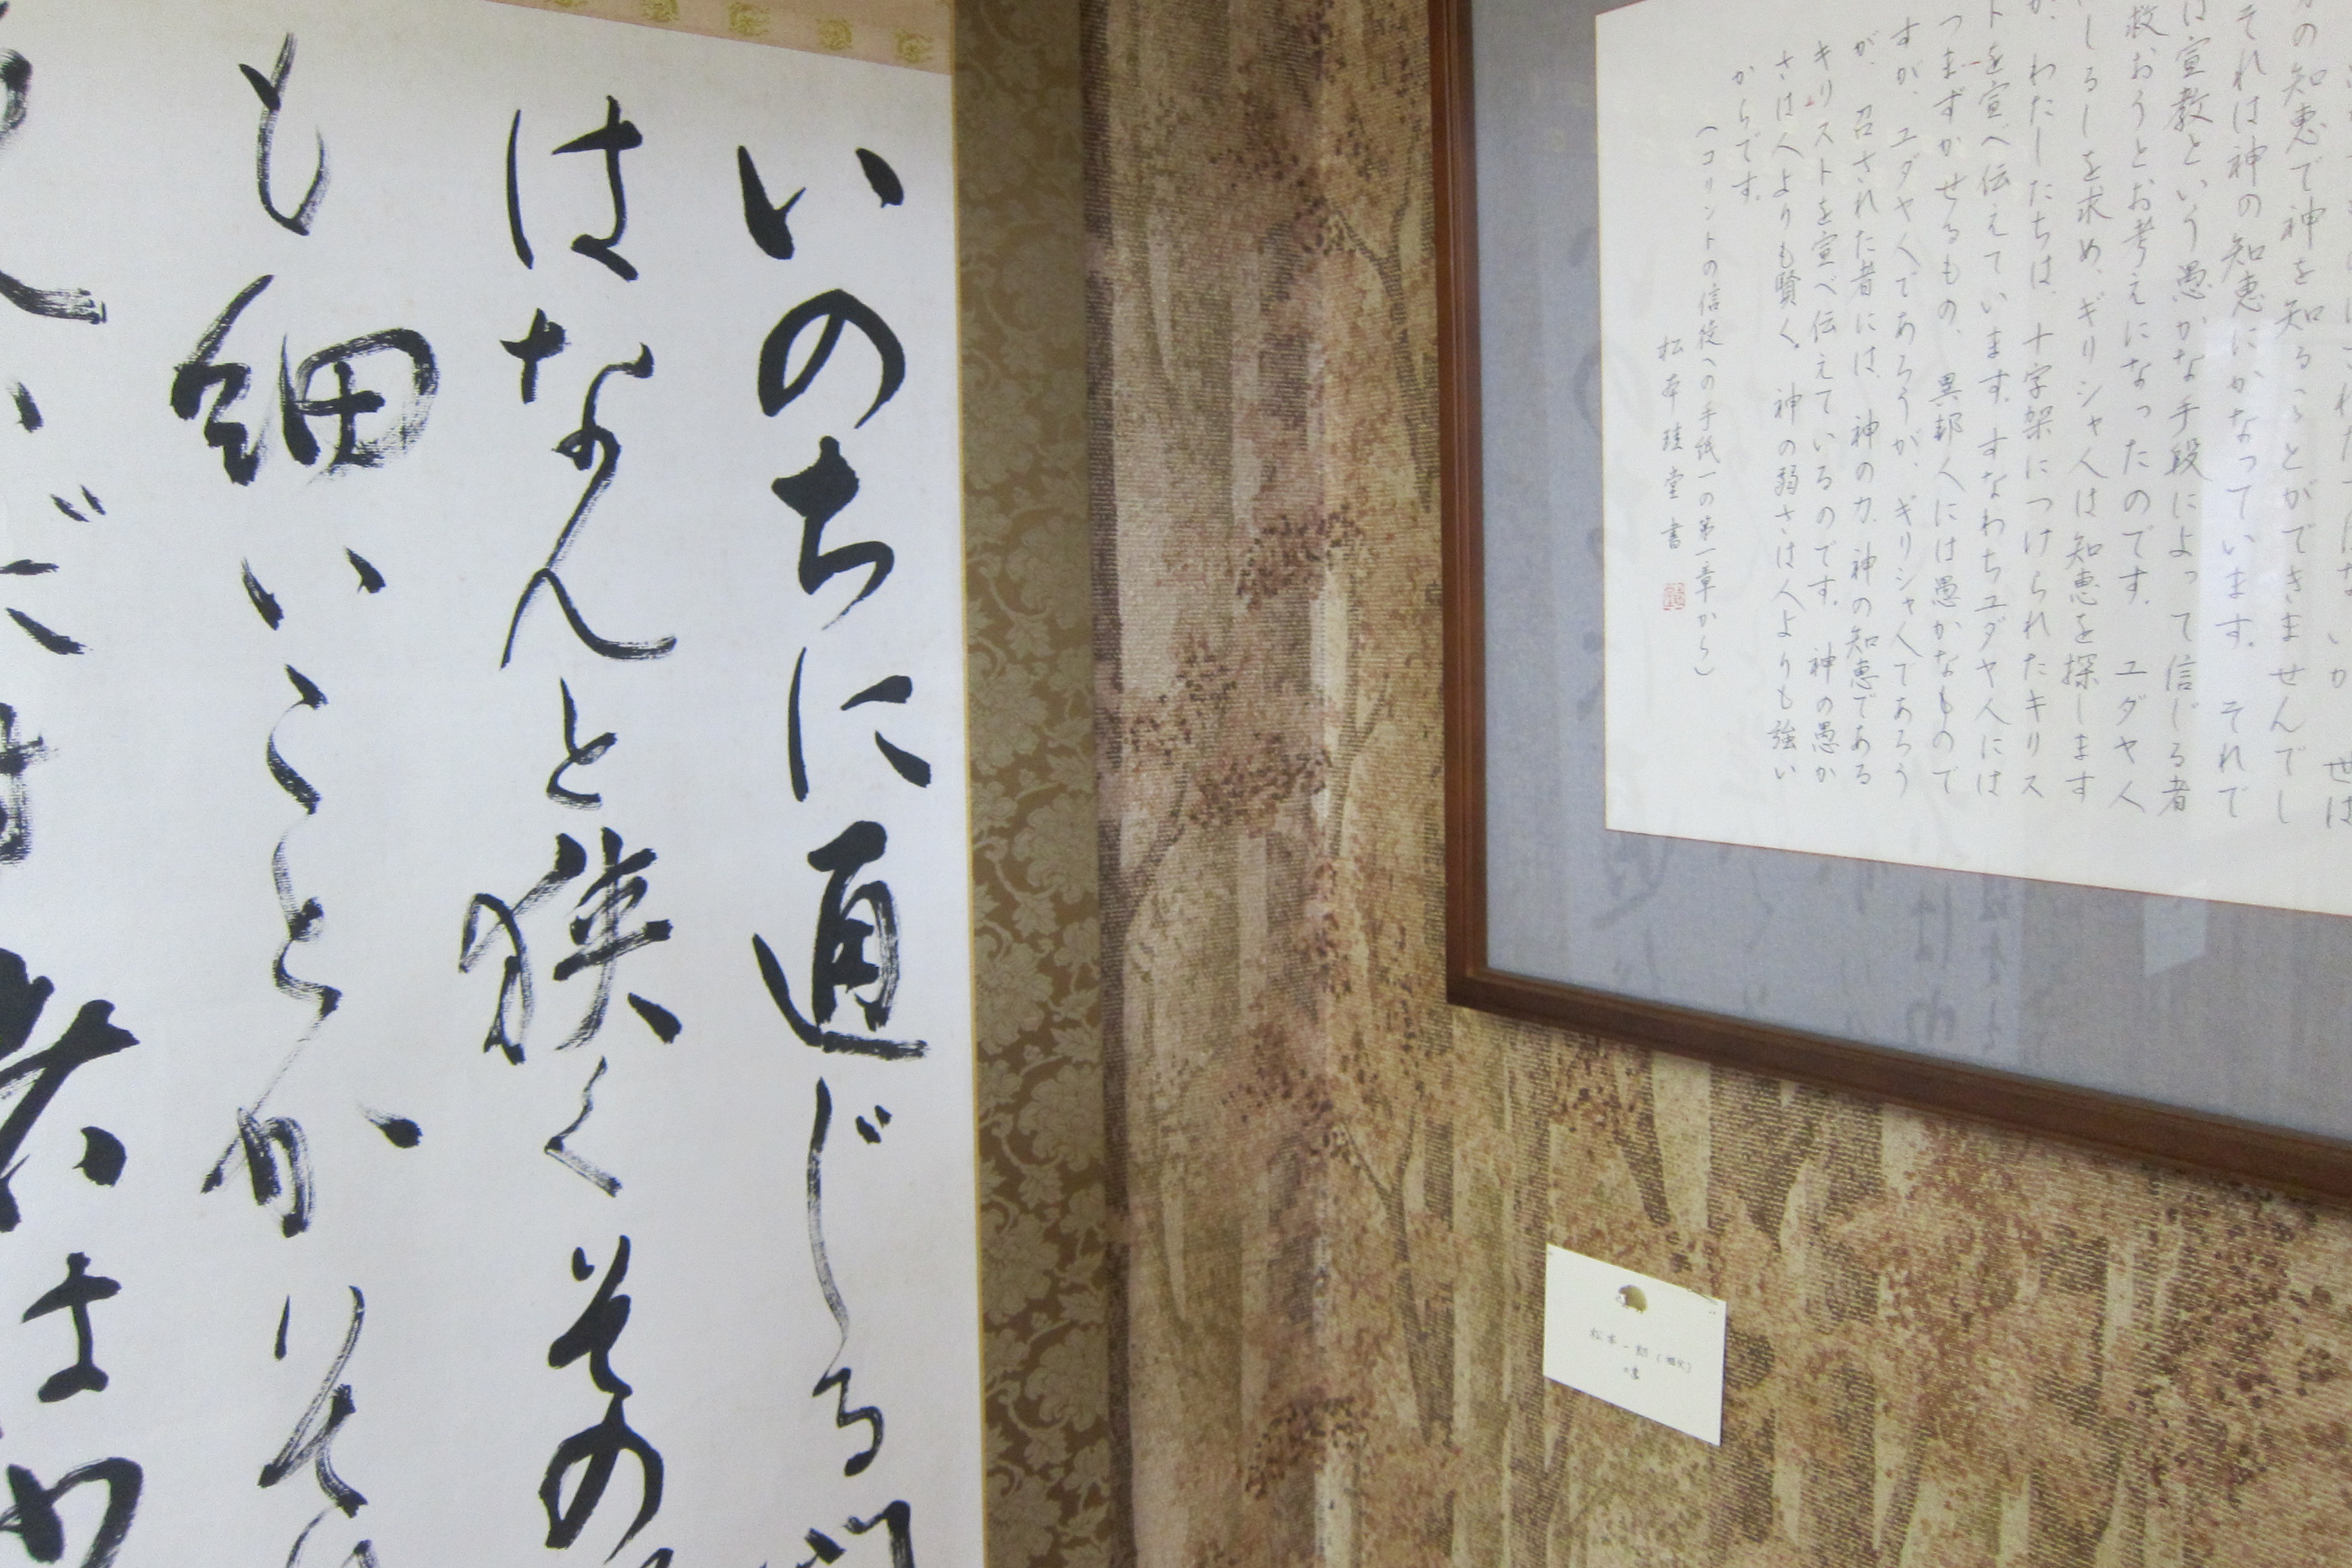 いのちに通じる門
はなんと狭くその
も細いことか
だけ
の知恵で神を知ることができませんでし
それは神の知恵にかなっています。それで
は宣教という愚かな手段によって信じる者
救おうとお考えになったのです。ユダヤ人
しるしを求め、ギリシャ人は知恵を探します
が、わたしたちは、十字架につけられたキリス
トを宣べ伝えています。すなわちユダヤ人には
つまずかせるもの、異邦人には愚かなもので
すが、ユダヤ人であろうが、ギリシャ人であろう
が、召された者には、神の力、神の知恵である
キリストを宣べ伝えているのです。神の愚か
さは人よりも賢く、神の弱さは人よりも強い
からです。
(コリントの信徒への手紙一の第一章から)
松本 堂 書
松本一郎(祖父)
の書